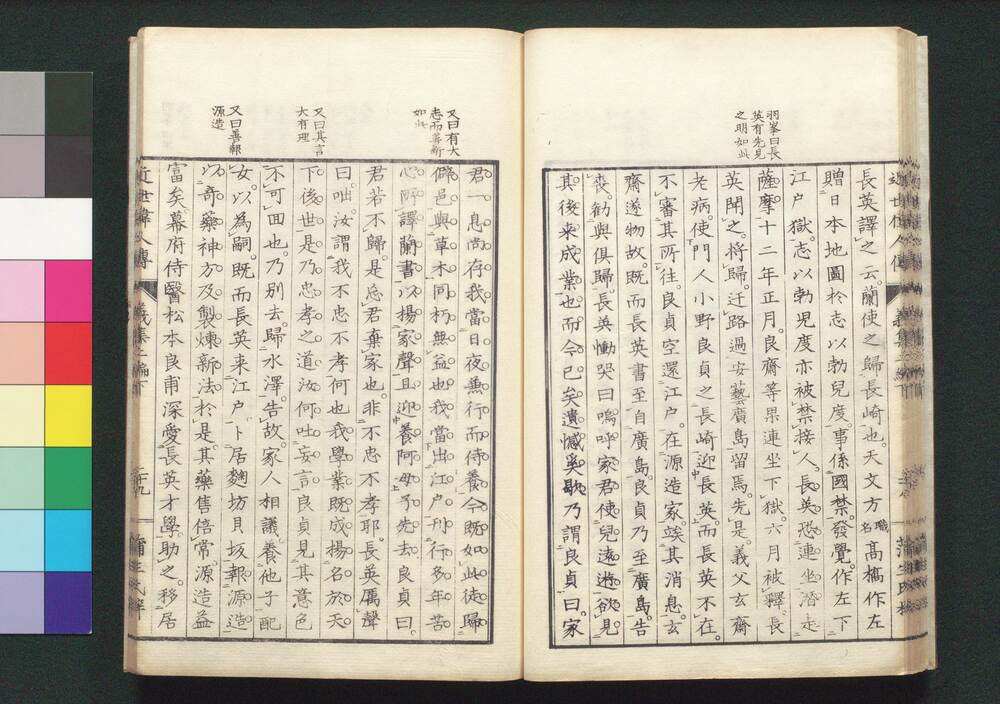 羽峯曰長
英有先見
之明如此
長英譯之云。蘭使之歸長崎也。天文方職名高橋作左
贈日本地圖於志以勃兒度。事係國禁。發覺。作左下
江戸獄。志以勃児度亦被禁接人。長英恐連坐。潜走
薩摩。十二年正月。良齋等果連坐下獄。六月被釋。長
英聞之。將歸。迂路過安藝廣島留焉。先是。義父玄齋
老病。使門人小野良貞之長崎迎長英。而長英不在。
不審其所往。良貞空還江戸。在源造家。竢其消息。玄
齋遂物故。既而長英書至自廣島。良貞乃至廣島。告
喪。勧與倶歸。長英慟哭曰。嗚呼。家君使兒遠遊。欲見
其後来成業也。而今已矣。遺憾奚歇。乃謂良貞曰。家
又曰有大
志而善斷
如此
又曰其言
大有理
又曰善報
源造
君一息尚存。我當日夜無行而侍養。今既如此。徒歸
僻邑。與草木同朽無益也。我當出江戸。刊行多年苦
心所譯蘭書。以揚家聲。且迎養阿母。予先去。良貞曰。
君若不歸。是忘君棄家也。非不忠不孝耶。長英厲聲
曰。咄。汝謂我不忠不孝何也。我學業既成。揚名於天
下後世。是乃忠孝之道。汝何吐妄言。良貞見其意色
不可回也。乃別去。歸水澤。告故。家人相議。養他子配
女。以為嗣。既而長英来江戸。卜居麹坊貝坂。報源造
以奇藥神方及製煉新法。於是。其藥售倍常。源造益
富矣。幕府侍醫松本良甫深愛長英才學。助之。移居
近世偉人傳
義集二編下
蒲生氏梓